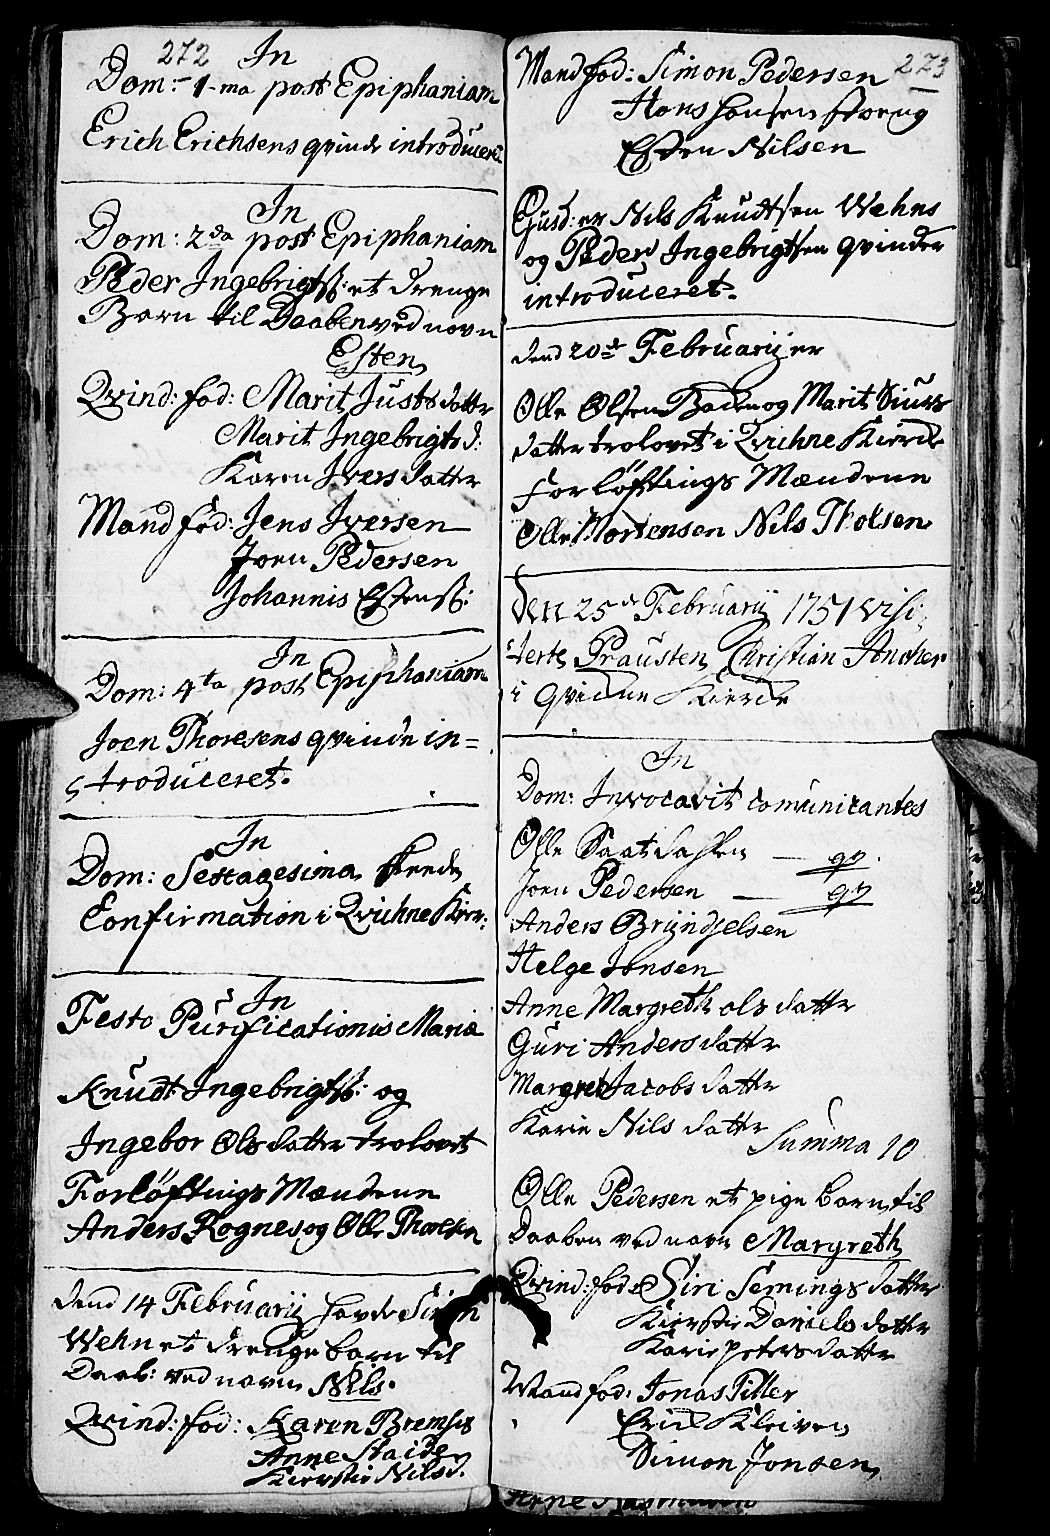 272
In
Dom: 1-ma post Epiphaniam
Erich Erichsens qvinde introduceret
In
Dom: 2da post Epiphaniam
Peder Ingebrigtss: et drenge
Barn til Daaben ved navn
Esten
Qvind: fad: Marit Justs datter
Marit Ingebrigts d:
Karen Ivers datter
Mand fad: Jens Iversen
Joen Pedersen
Johannis Estenss:
In
Dom: 4ta post Epiphaniam
Joen Thoresens qvinde in=
troduceret.
In
Dom: Sexagesima skeede
Confirmation i Qvichne Kirr:
In
Festo Purificationis Mariæ
Knudt Ingebrigtss: og
Ingebor Ols datter trolovet
Forløftnings Mændene
Anders Rognes og Olle Thoresen
dend 14 Februarij havde Simen
Wehn et drenge barn til
Daab: ved navn Nils.
Qvind: fad: Karen Bremses
Anne Staide
Kierstie Nilsd.
273
Mand fad: Simon Pedersen
Hans Hansen Storeng
Esten Nilsen
Ejusd: er Nils Knudtsen Wehns
og Peder Ingebrigtsen qvinder
introduceret.
dend 20de Februarij er
Olle Olsen Baden og Marit Siurs
datter trolovet i Qvichne Kierche
Forløftnings Mændene
Olle Mortensen Nils Tholsen
den 25de Februarij 1751 visi-
terte Prousten Christian Ancher
i Qvichne Kierche
In
Dom: Invocavit comunicantes
Olle Saatdahlen — qv.
Joen Pedersen — qv
Anders Bryndjelsen
Helge Jonsen
Anne Margreth ols datter
Guri Anders datter
Margret Jacobs datter
Karie Nils datter
Summa 10
Olle Pedersen et pige barn til
Daaben ved navn Margreth
Qvind: fad: Siri Semings datter
Kierstie Daniels datter
Karie peters datter
Mand fad: Jonas Piller
Erich Kleiven
Simon Jonsen